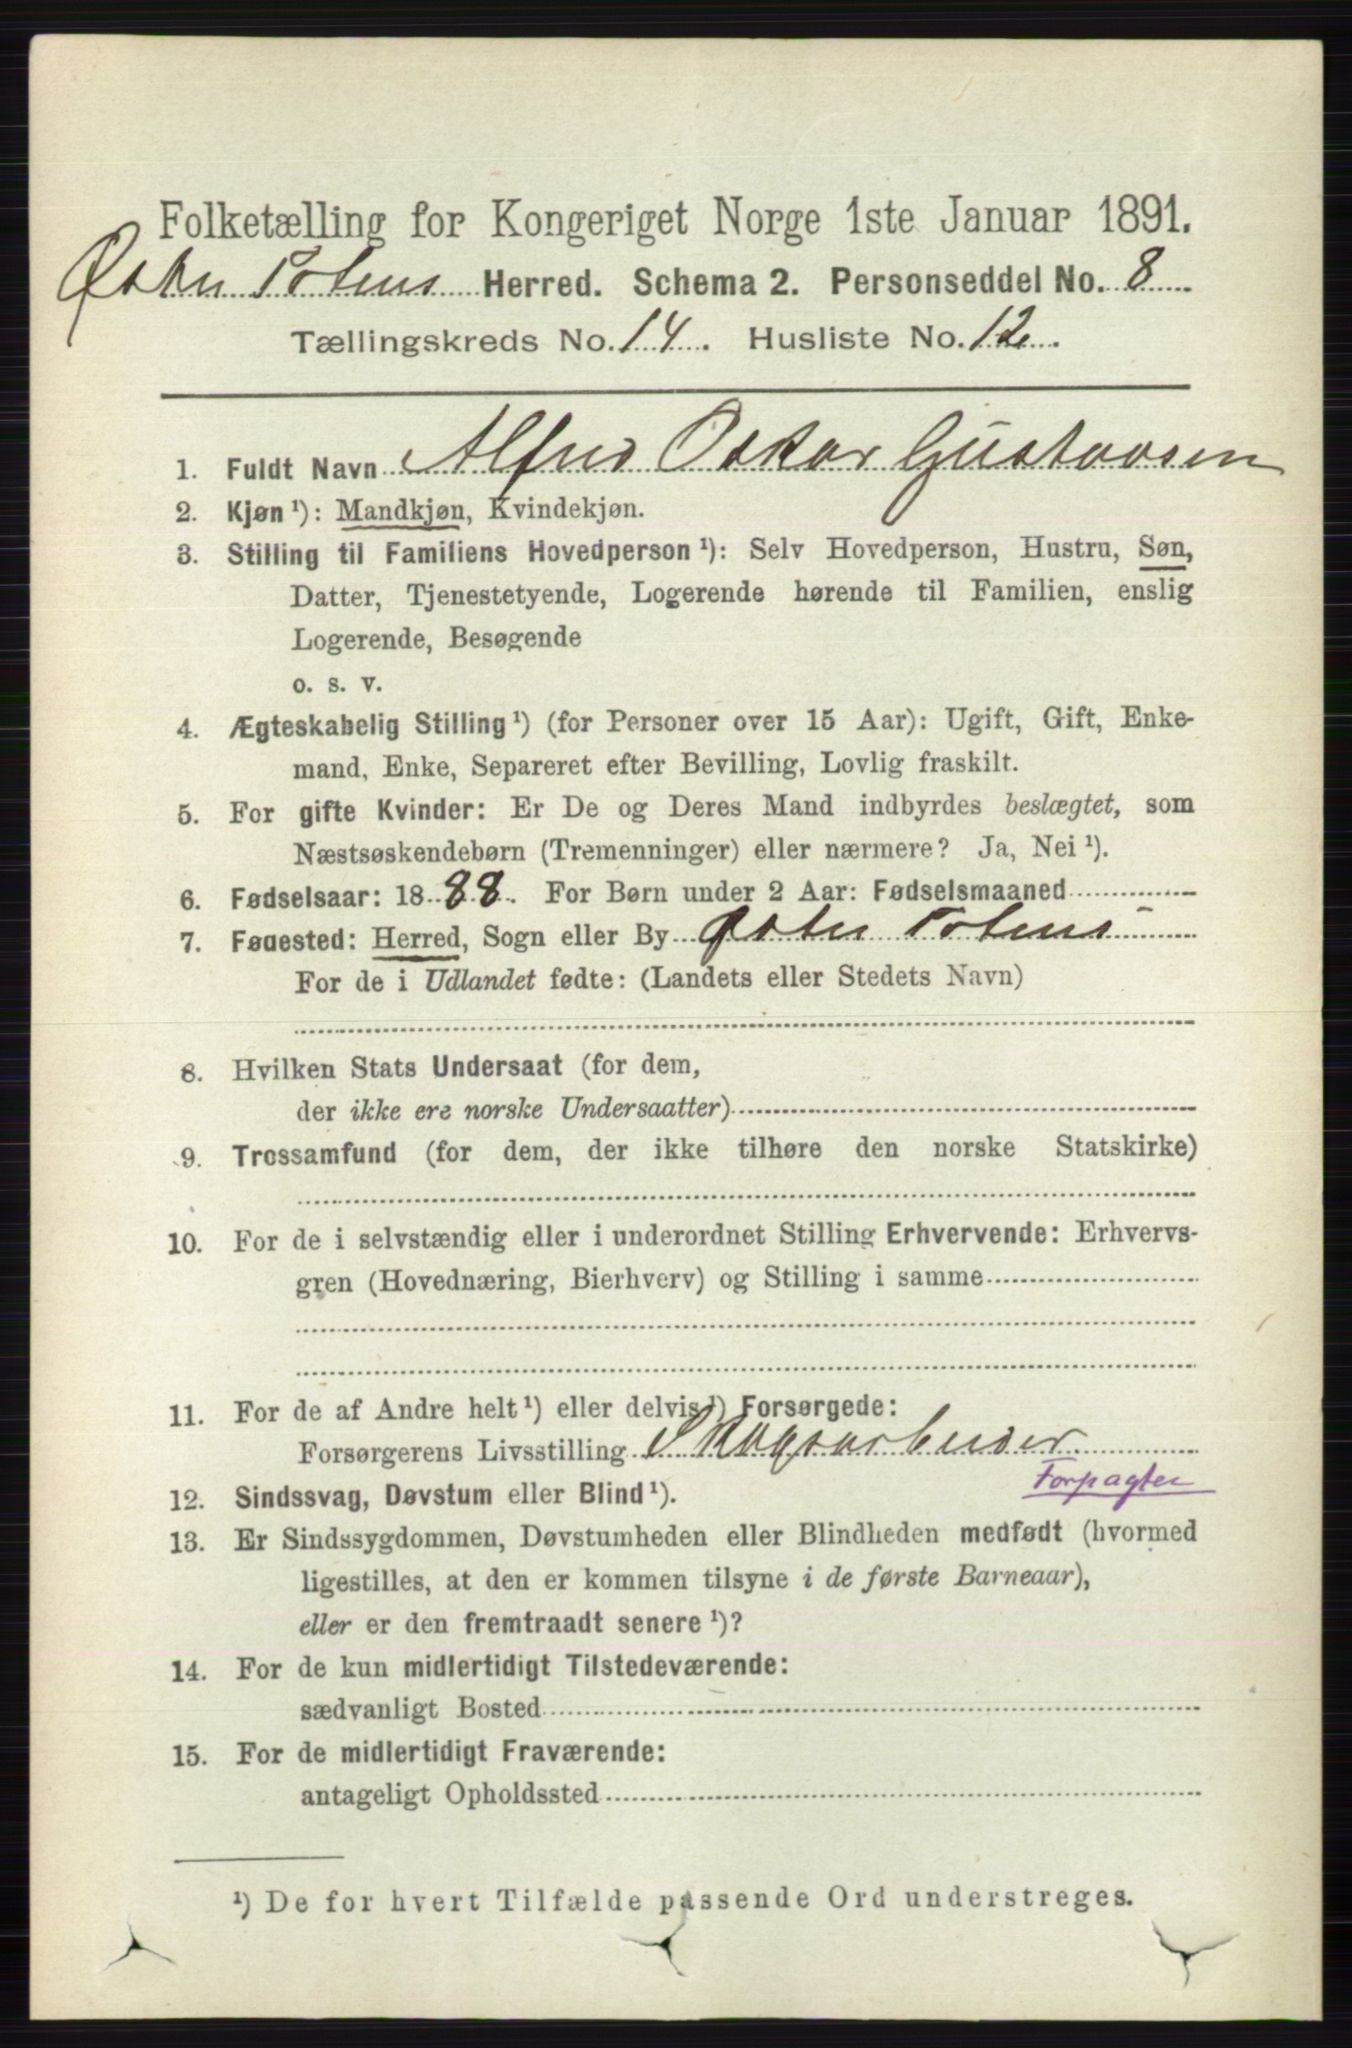 Folketælling for Kongeriget Norge 1ste Januar 1891.
Østre Totens Herred. Schema 2. Personseddel No. 8
Tællingskreds No. 14. Husliste No. 12.
1. Fuldt Navn Alfred Oskar Gustavsen
2. Kjøn ¹): Mandkjøn, Kvindekjøn.
3. Stilling til Familiens Hovedperson ¹): Selv Hovedperson, Hustru, Søn,
Datter, Tjenestetyende, Logerende hørende til Familien, enslig
Logerende, Besøgende
o. s. v.
4. Ægteskabelig Stilling ¹) (for Personer over 15 Aar): Ugift, Gift, Enke-
mand, Enke, Separeret efter Bevilling, Lovlig fraskilt.
5. For gifte Kvinder: Er De og Deres Mand indbyrdes beslægtet, som
Næstsøskendebørn (Tremenninger) eller nærmere? Ja, Nei ¹).
6. Fødselsaar: 1888. For Børn under 2 Aar: Fødselsmaaned
7. Føuested: Herred, Sogn eller By Østre Totens
For de i Udlandet fødte: (Landets eller Stedets Navn)
8. Hvilken Stats Undersaat (for dem,
der ikke ere norske Undersaatter)
9. Trossamfund (for dem, der ikke tilhøre den norske Statskirke)
10. For de i selvstændig eller i underordnet Stilling Erhvervende: Erhvervs-
gren (Hovednæring, Bierhverv) og Stilling i samme
11. For de af Andre helt ¹) eller delvis ¹) Forsørgede:
Forsørgerens Livsstilling Skogsarbeider
Forpagter
12. Sindssvag, Døvstum eller Blind ¹).
13. Er Sindssygdommen, Døvstumheden eller Blindheden medfødt (hvormed
ligestilles, at den er kommen tilsyne i de første Barneaar),
eller er den fremtraadt senere ¹)?
14. For de kun midlertidigt Tilstedeværende:
sædvanligt Bosted
15. For de midlertidigt Fraværende:
antageligt Opholdssted
¹) De for hvert Tilfælde passende Ord understreges.